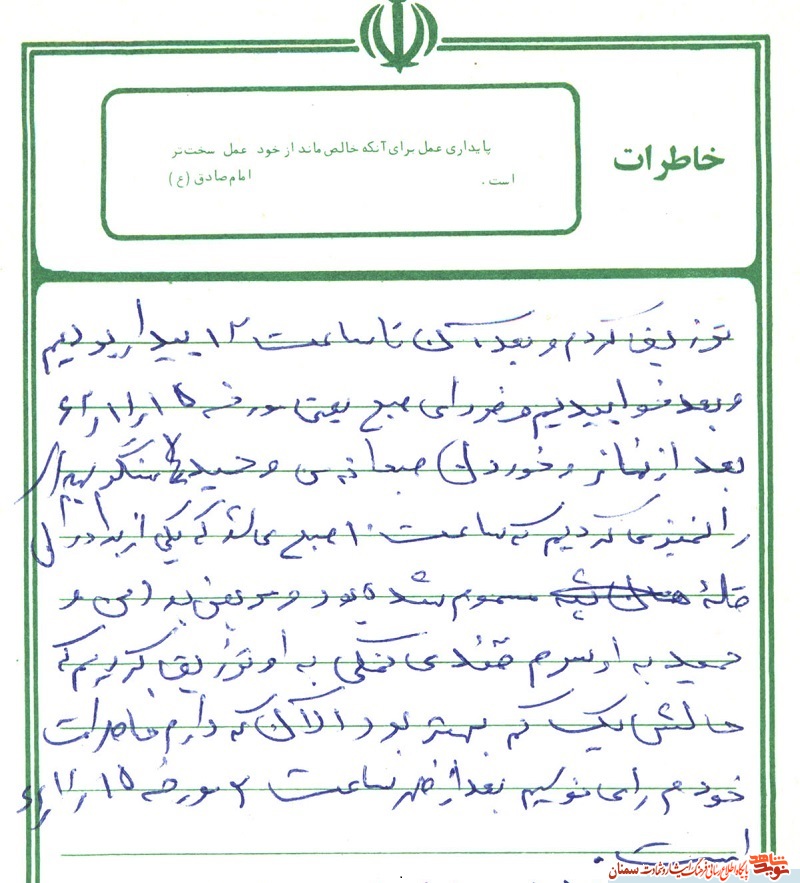 خاطرات
پایداری عمل برای آنکه خالص ماند از خود عمل سخت‌تر
است. امام صادق (ع)
تزریق کردم و بعد از آن تا ساعت ۱۲ بیدار بودیم
و بعد خوابیدیم و فردای صبح یعنی مورخه ۱۵/۱۱/
بعد از نماز و خوردن صبحانه من و حمید سنگر
را تمیز می کردیم که ساعت ۱۰ صبح می شد که یکی از برادران
مسموم شده بود و مریض بود من و
حمید به او سرم قندی نمکی به او تزریق کردیم که
حالش یک کم بهتر بود الآن که دارم خاطرات
خودم را می نویسم بعد از ظهر ساعت ۲ مورخه ۱۵/۱۱/
است.
نوید شاهد پایگاه اطلاع رسانی فرهنگ ایثار و شهادت سمنان